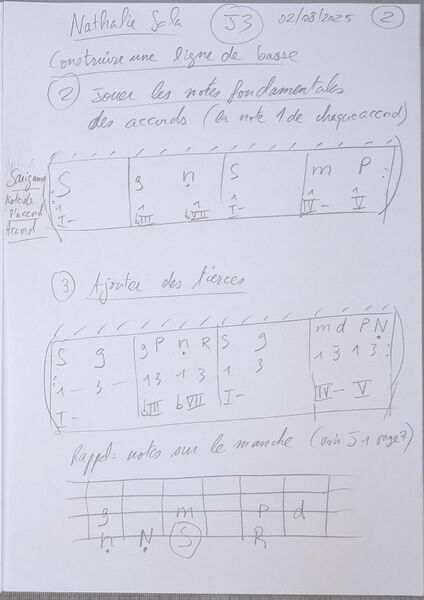 Nathalie Sala J3 02/08/2025 2
Construire une ligne de basse
2 Jouer les notes fondamentales
des accords (la note 1 de chaque accord)
Sargama S g ṇ S m P
Note de l'accord 1 1 1 1 1 1
Accord I- bIII bVII I- IV- V
3 Ajouter des tierces
S g g P ṇ R S g m d P Ṇ
1 - 3 - 1 3 1 3 1 3 1 3 1 3
I- bIII bVII I- IV- V
Rappel = notes sur le manche (voir J1 page 7)
g m P d
ṇ Ṇ S R